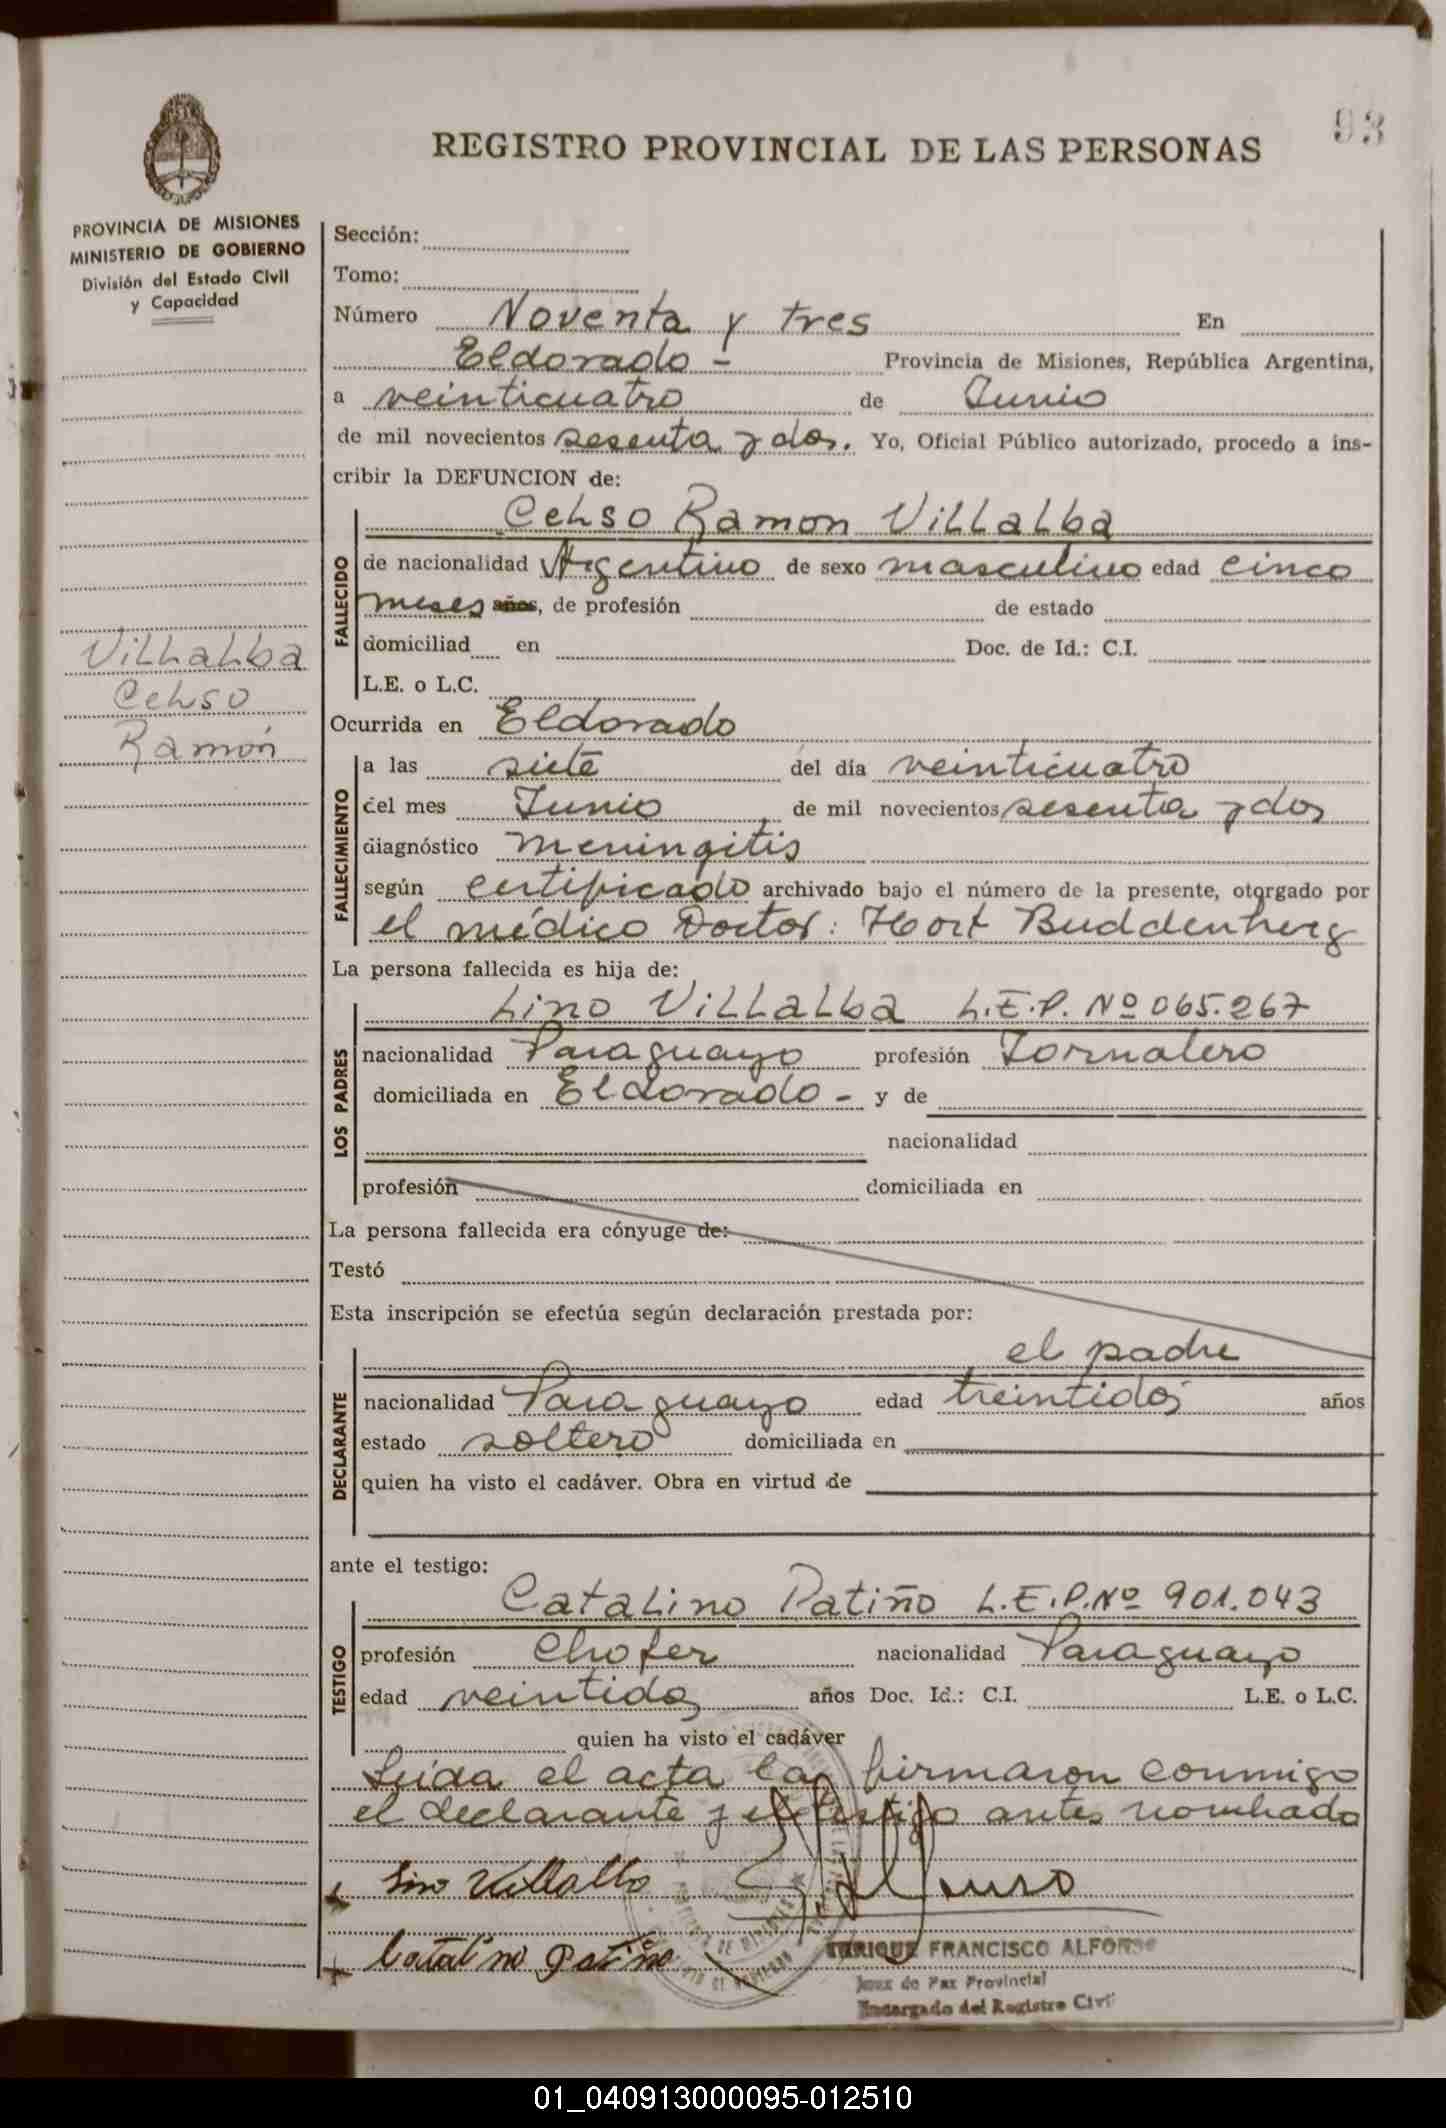 93
REGISTRO PROVINCIAL DE LAS PERSONAS
PROVINCIA DE MISIONES
MINISTERIO DE GOBIERNO
División del Estado Civil
y Capacidad
Villalba
Celso
Ramón
Sección:
Tomo:
Número Noventa y tres En
Eldorado - Provincia de Misiones, República Argentina,
a veinticuatro de Junio
de mil novecientos sesenta y dos. Yo, Oficial Público autorizado, procedo a ins-
cribir la DEFUNCION de:
FALLECIDO
Celso Ramon Villalba
de nacionalidad Argentino de sexo masculino edad cinco
meses años, de profesión de estado
domiciliad en Doc. de Id.: C.I.
L.E. o L.C.
Ocurrida en Eldorado
FALLECIMIENTO
a las siete del día veinticuatro
del mes Junio de mil novecientos sesenta y dos
diagnóstico Meningitis
según certificado archivado bajo el número de la presente, otorgado por
el médico Doctor: Hort Buddenberg
La persona fallecida es hija de:
LOS PADRES
Lino Villalba L.E.P. Nº 065.267
nacionalidad Paraguayo profesión Jornalero
domiciliada en Eldorado - y de
nacionalidad
profesión domiciliada en
La persona fallecida era cónyuge de:
Testó
Esta inscripción se efectúa según declaración prestada por:
DECLARANTE
el padre
nacionalidad Paraguayo edad treintidos años
estado soltero domiciliada en
quien ha visto el cadáver. Obra en virtud de
ante el testigo:
TESTIGO
Catalino Patiño L.E.P. Nº 901.043
profesión Chofer nacionalidad Paraguayo
edad veintidos años Doc. Id.: C.I. L.E. o L.C.
quien ha visto el cadáver
Leida el acta la firmaron conmigo
el declarante y el testigo antes nombrado
Lino Villalba
Catalino Patiño
ENRIQUE FRANCISCO ALFONSO
Juez de Paz Provincial
Encargado del Registro Civil
01_040913000095-012510